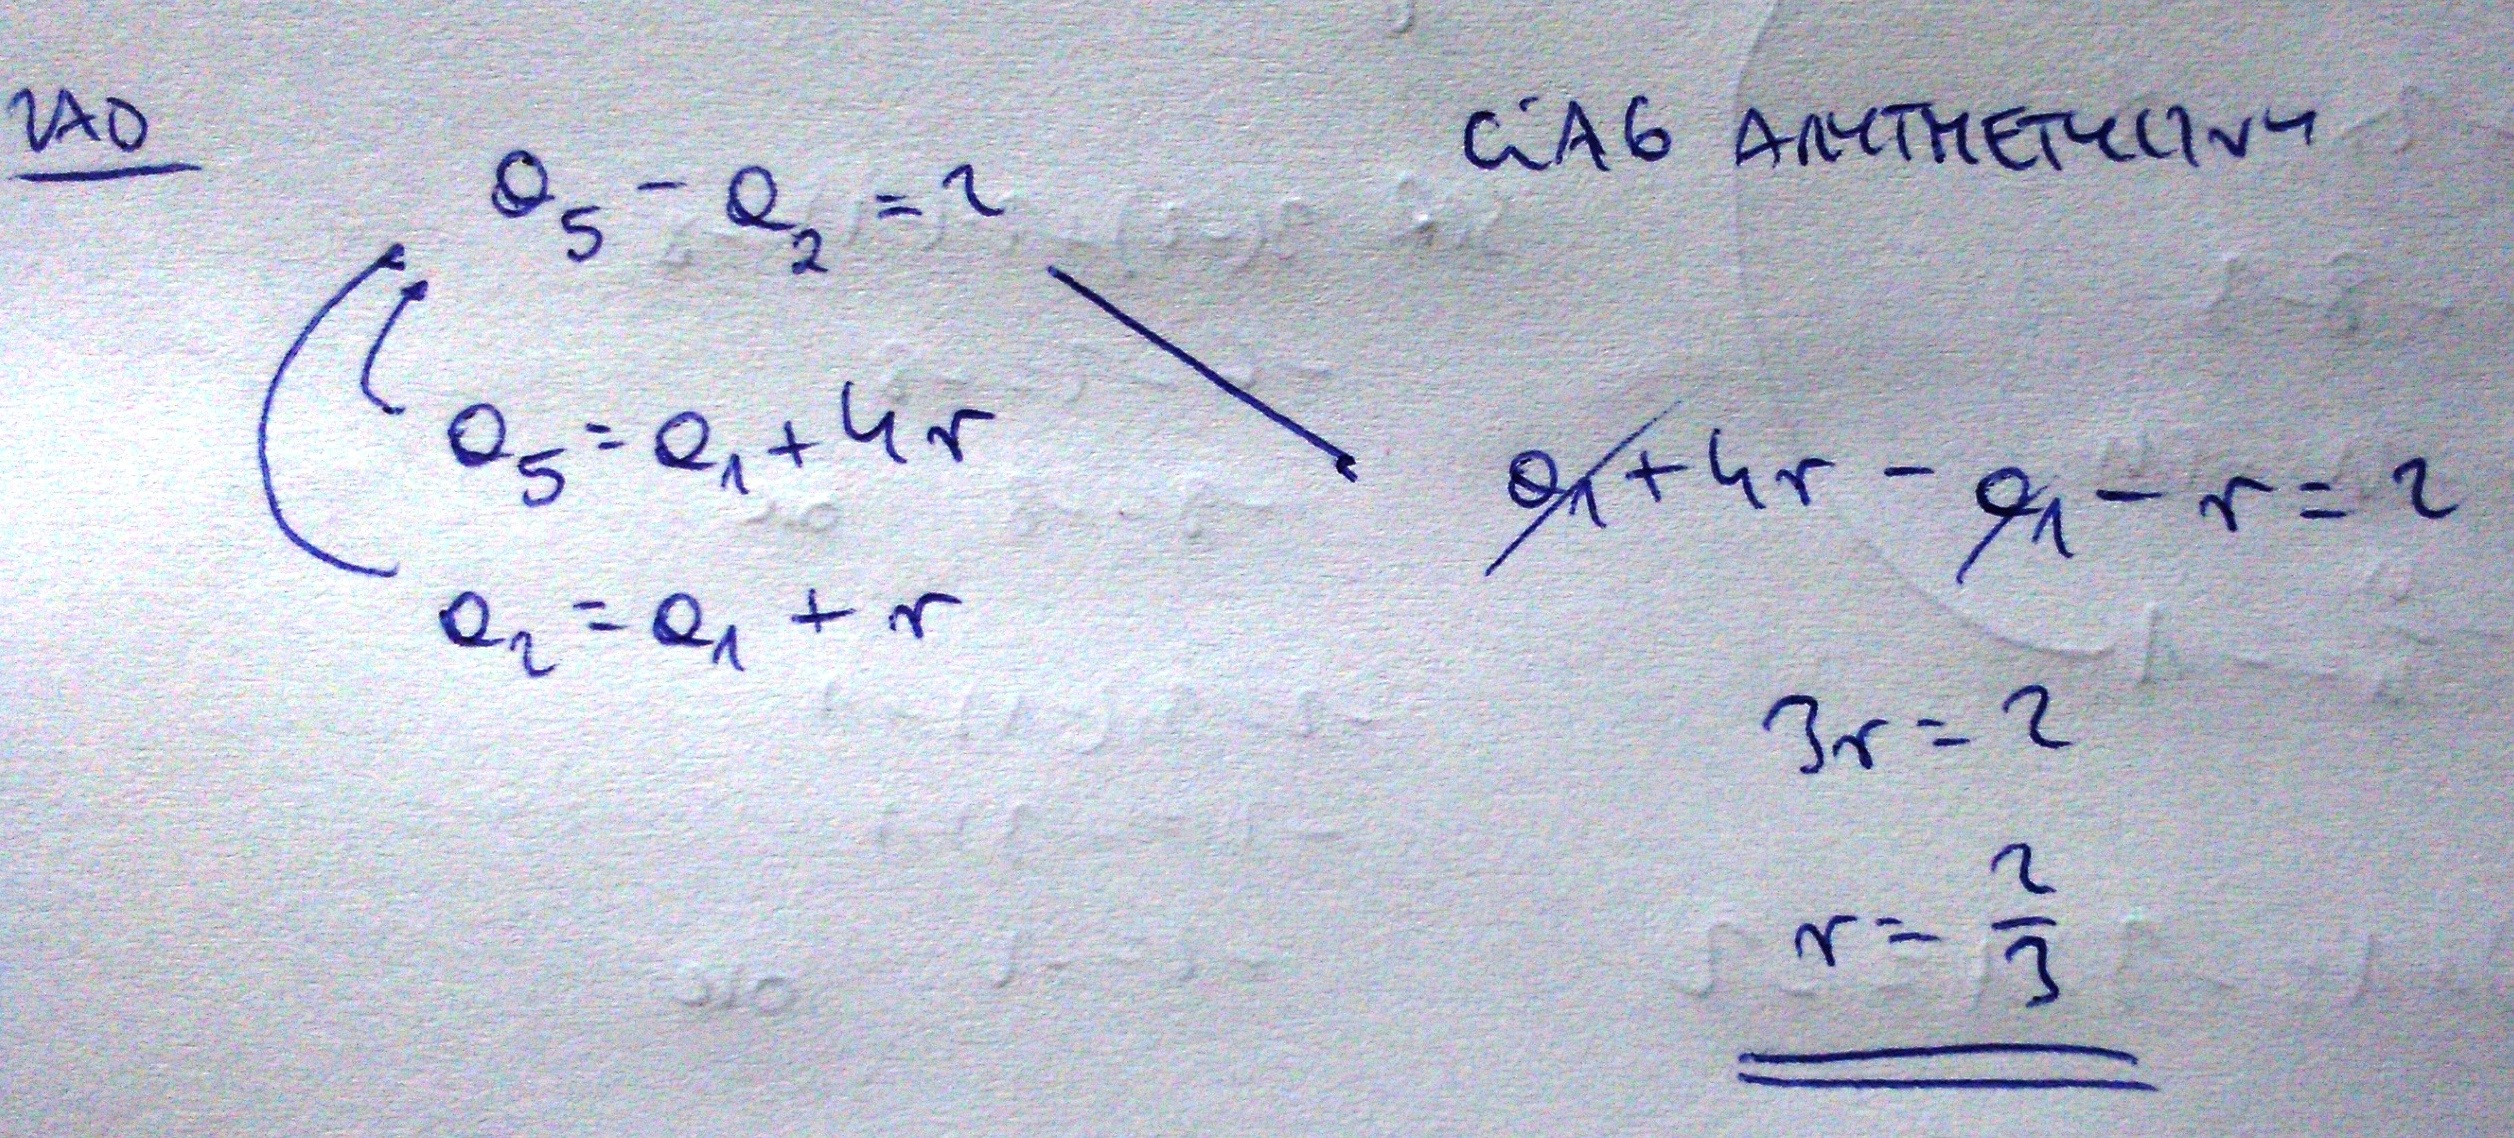 ZAD
CIĄG ARYTMETYCZNY
a₅ - a₂ = 2
a₅ = a₁ + 4r
a₂ = a₁ + r
a₁ + 4r - a₁ - r = 2
3r = 2
r = 2/3